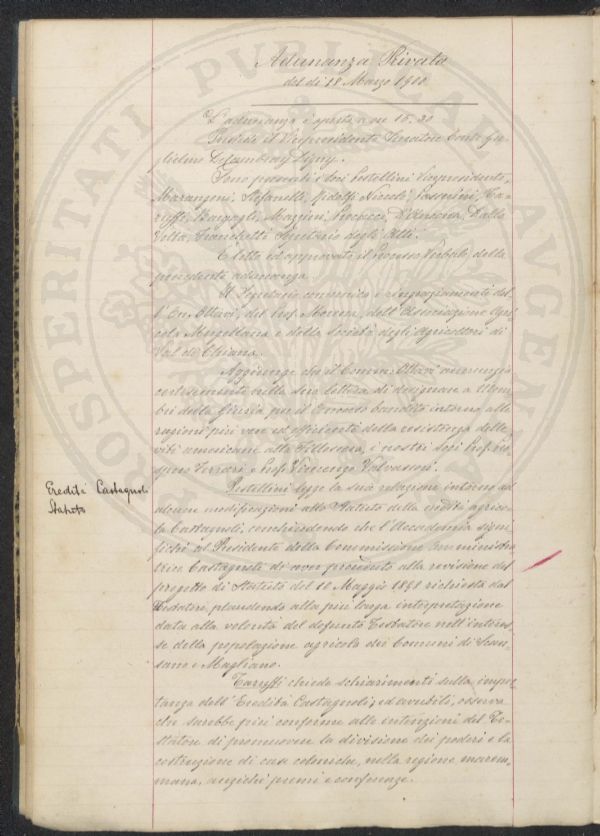 Adunanza Privata
del dì 18 Marzo 1900.
L'adunanza è aperta a ore 10.20
Presiede il Vicepresidente Senatore Conte Gu-
glielmo De Cambray Digny.
Sono presenti i Soci Pestellini Vicepresidente,
Marangoni, Stefanelli, Ridolfi Niccolò, Passerini, Ta-
ruffi, Bargagli, Mazzini, D'Ancona, Dalla
Volta, Franchetti Segretario degli Atti.
È letto ed approvato il Processo Verbale della
precedente adunanza.
Il Segretario comunica i ringraziamenti del-
l'On. Ottavi, del Prof. Morera, dell'Associazione Agri-
cola Mugellana e della Società degli Agricoltori di
Val di Chiana.
Aggiunge che il Comm. Ottavi
cortesemente nella sua lettera di designare a Mem-
bri della Giuria per il Concorso bandito intorno alle
ragioni più vere ed efficienti della resistenza delle
viti americane alla Fillossera, i nostri Soci Prof. Pro-
spero Ferrari e Prof. Vincenzo Valvassori.
Eredità Castagnoli
Statuto
Pestellini legge la sua relazione intorno ad
alcune modificazioni allo Statuto della eredità agrico-
la Castagnoli, concludendo che l'Accademia signi-
fichi al Presidente della Commissione amministra-
trice Castagnoli di aver proceduto alla revisione del
progetto di Statuto del 10 Maggio 1898 richiesta dal
Testatore, plaudendo alla più larga interpretazione
data alla volontà del defunto Testatore nell'interes-
se della popolazione agricola dei Comuni di Scan-
sano e Magliano.
Taruffi chiede schiarimenti sulla impor-
tanza dell'Eredità Castagnoli, ed avutili, osserva
che sarebbe più conforme alle intenzioni del Te-
statore di promuovere la divisione dei poderi e la
costruzione di case coloniche, nella regione marem-
mana, anziché premi e conferenze.
PROSPERITATI PUBLICAE AUGENDAE